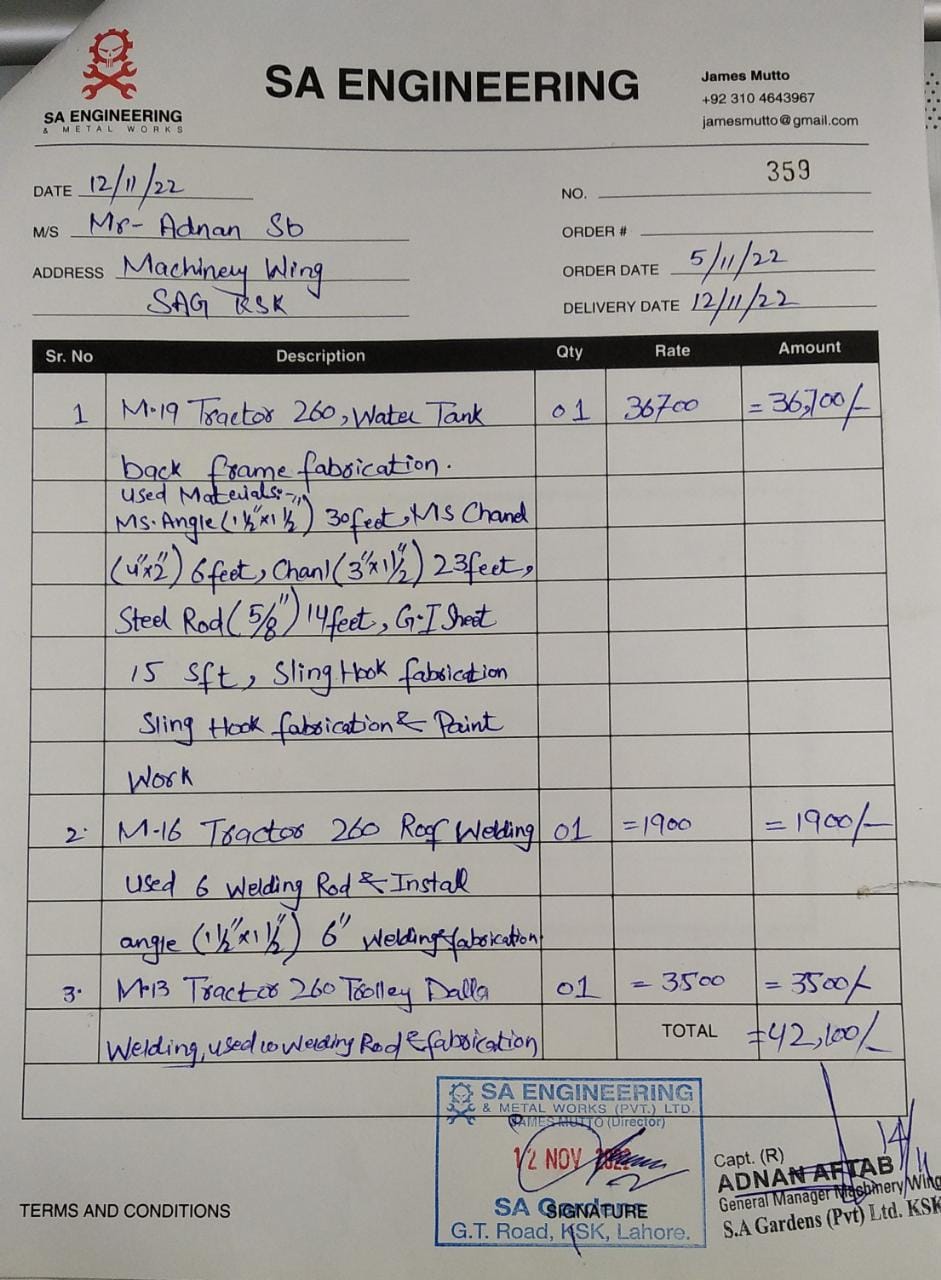 SA ENGINEERING
& METAL WORKS
SA ENGINEERING
James Mutto
+92 310 4643967
jamesmutto@gmail.com
DATE 12/11/22
NO. 359
M/S Mr- Adnan Sb
ORDER #
ADDRESS Machiney Wing
SAG KSK
ORDER DATE 5/11/22
DELIVERY DATE 12/11/22
Sr. No Description Qty Rate Amount
1 M-19 Tractor 260, Water Tank 01 36700 = 36,700/-
back frame fabrication.
used Materials:-
MS. Angle (1½"x1½") 30 feet, MS Chanl
(4"x2") 6 feet, Chanl (3"x1½") 23 feet,
Steel Rod (5/8") 14 feet, G.I Sheet
15 Sft, Sling Hook fabrication
Sling Hook fabrication & Paint
Work
2. M-16 Tractor 260 Roof Welding 01 =1900 = 1900/-
used 6 Welding Rod & Install
angle (1½"x1½") 6" Welding & fabrication
3. M-13 Tractor 260 Trolley Dalla 01 = 3500 = 3500/-
Welding, used 10 Welding Rod & fabrication TOTAL =42,100/-
SA ENGINEERING
& METAL WORKS (PVT.) LTD
JAMES MUTTO (Director)
12 NOV 2022
SA Gardens
SIGNATURE
G.T. Road, KSK, Lahore.
14/11
Capt. (R)
ADNAN AFTAB
General Manager Machinery Wing
S.A Gardens (Pvt) Ltd. KSK
TERMS AND CONDITIONS